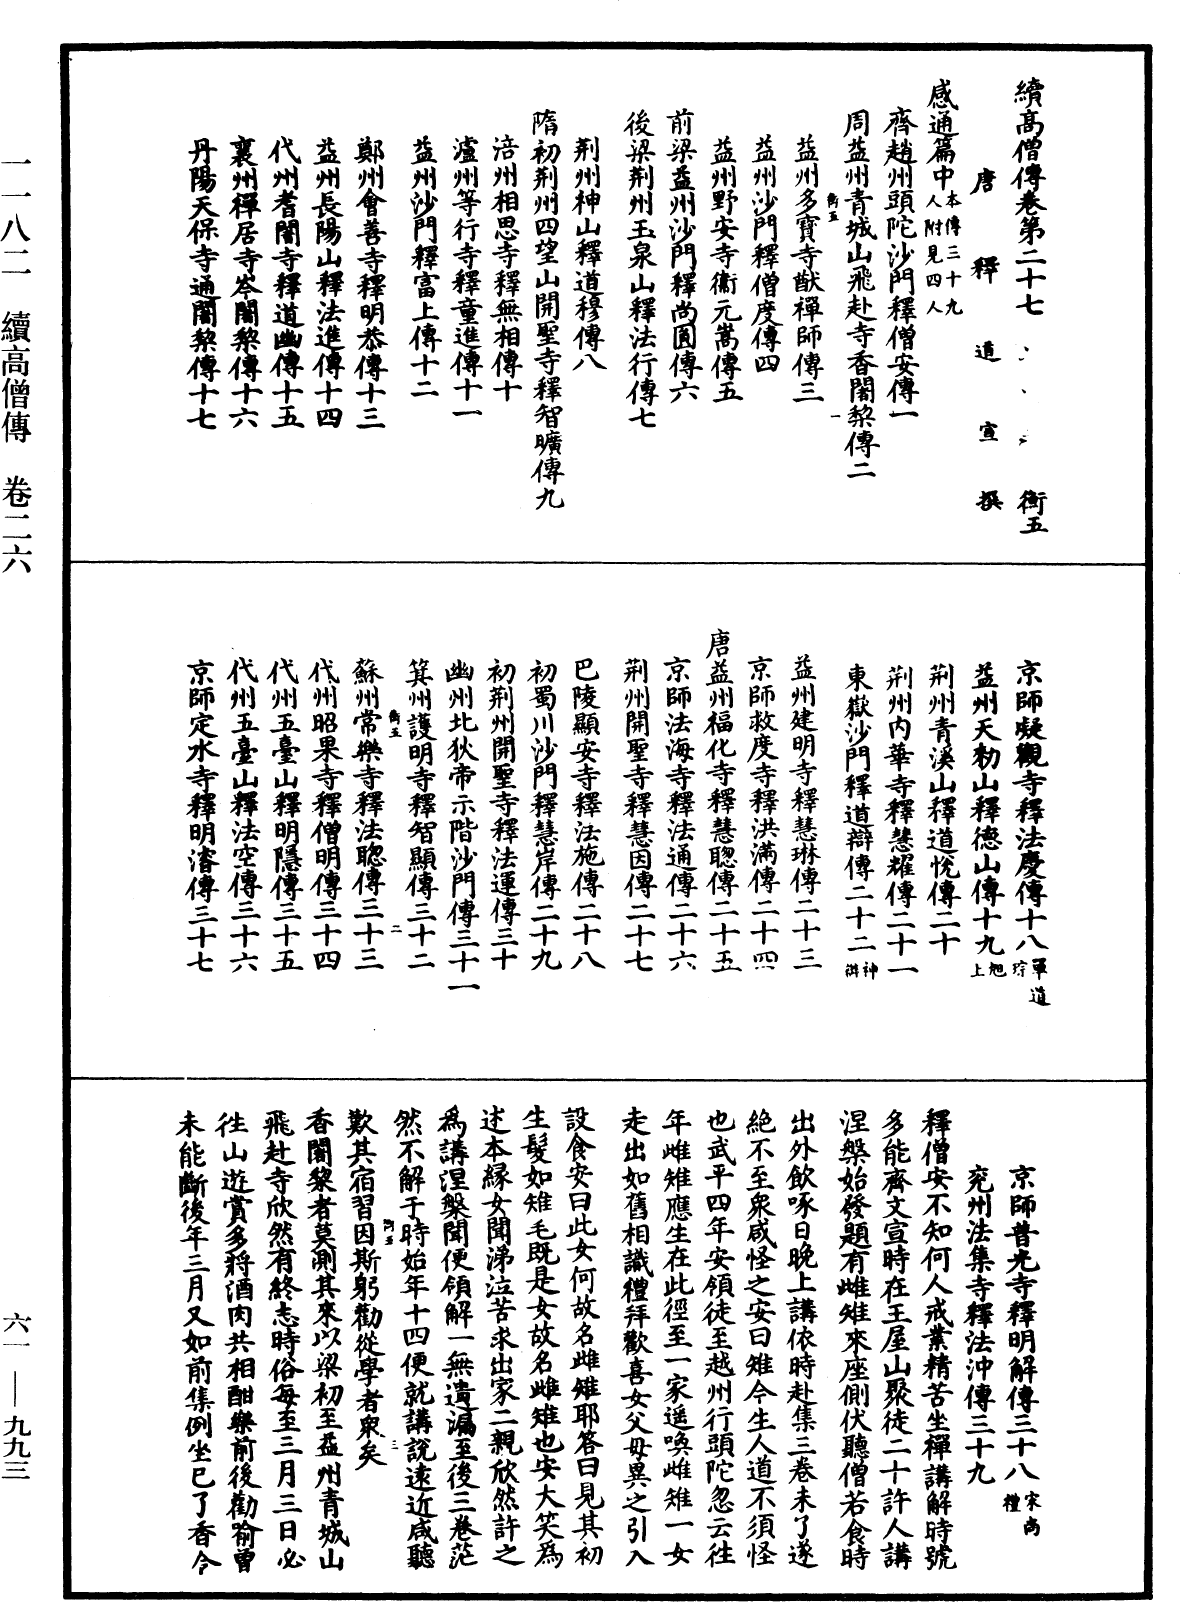 續高僧傳卷第二十七 衡五
唐釋道宣撰
感通篇中本傳三十九人附見四人
齊趙州頭陀沙門釋僧安傳一
周益州青城山飛赴寺香闍黎傳二
益州多寶寺猷禪師傳三
益州沙門釋僧度傳四
益州野安寺衞元嵩傳五
前梁益州沙門釋尚圓傳六
後梁荆州玉泉山釋法行傳七
荆州神山釋道穆傳八
隋初荆州四望山開聖寺釋智曠傳九
涪州相思寺釋無相傳十
瀘州等行寺釋童進傳十一
益州沙門釋富上傳十二
鄭州會善寺釋明恭傳十三
益州長陽山釋法進傳十四
代州耆闍寺釋道幽傳十五
襄州禪居寺岑闍黎傳十六
丹陽天保寺通闍黎傳十七
京師凝觀寺釋法慶傳十八
益州天勑山釋德山傳十九旭上
荆州青溪山釋道恱傳二十
荆州内華寺釋慧耀傳二十一
東嶽沙門釋道辯傳二十二神辯
益州建明寺釋慧琳傳二十三
京師救度寺釋洪滿傳二十四
唐益州福化寺釋慧聰傳二十五
京師法海寺釋法通傳二十六
荆州開聖寺釋慧因傳二十七
巴陵顯安寺釋法施傳二十八
初蜀川沙門釋慧岸傳二十九
初荆州開聖寺釋法運傳三十
幽州北狄帝示階沙門傳三十一
箕州護明寺釋智顯傳三十二
蘇州常樂寺釋法聰傳三十三
代州昭果寺釋僧明傳三十四
代州五臺山釋明隱傳三十五
代州五臺山釋法空傳三十六
京師定水寺釋明濬傳三十七
京師普光寺釋明解傳三十八宋尚禮
兖州法集寺釋法沖傳三十九
釋僧安不知何人戒業精苦坐禪講解時號
多能齊文宣時在王屋山聚徒二十許人講
涅槃始發題有雌雉來座側伏聽僧若食時
出外飲啄日晚上講依時赴集三卷未了遂
絶不至衆咸怪之安曰雉今生人道不須怪
也武平四年安領徒至越州行頭陀忽云往
年雌雉應生在此徑至一家遥喚雌雉一女
走出如舊相識禮拜歡喜女父母異之引入
設食安曰此女何故名雌雉耶答曰見其初
生髮如雉毛既是女故名雌雉也安大笑爲
述本縁女聞涕泣苦求出家二親欣然許之
爲講涅槃聞便領解一無遺漏至後三卷茫
然不解于時始年十四便就講說遠近咸聽
歎其宿習因斯躬勸從學者衆矣
香闍黎者莫測其來以梁初至益州青城山
飛赴寺欣然有終志時俗每至三月三日必
往山遊賞多將酒肉共相酣樂前後勸喻曾
未能斷後年三月又如前集例坐已了香令
一一八二 續高僧傳 卷二六
六一——九九三